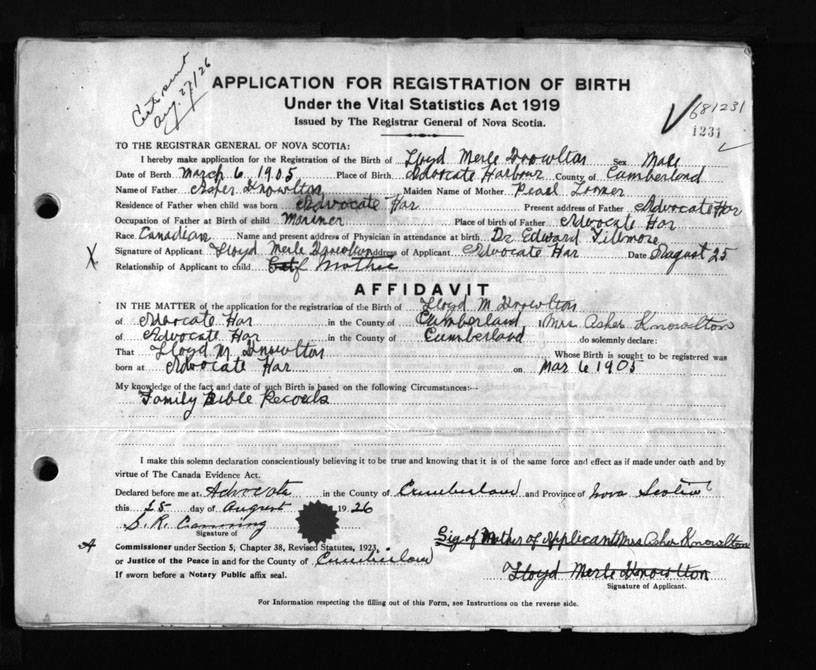 Cert sent
Aug. 27/26
681231
1231
APPLICATION FOR REGISTRATION OF BIRTH
Under the Vital Statistics Act 1919
Issued by The Registrar General of Nova Scotia.
TO THE REGISTRAR GENERAL OF NOVA SCOTIA:
I hereby make application for the Registration of the Birth of Lloyd Merle Knowlton Sex Male
Date of Birth March 6 1905 Place of Birth Advocate Harbour County of Cumberland
Name of Father Asher Knowlton Maiden Name of Mother Pearl Loomer
Residence of Father when child was born Advocate Har Present address of Father Advocate Har
Occupation of Father at Birth of child Mariner Place of birth of Father Advocate Har
Race Canadian Name and present address of Physician in attendance at birth Dr Edward
X Signature of Applicant Lloyd Merle Knowlton Address of Applicant Advocate Har Date August 25
Relationship of Applicant to child Mother
AFFIDAVIT
IN THE MATTER of the application for the registration of the Birth of Lloyd M Knowlton
of Advocate Har in the County of Cumberland Mrs Asher Knowlton
of Advocate Har in the County of Cumberland do solemnly declare:
That Lloyd M. Knowlton Whose Birth is sought to be registered was
born at Advocate Har on Mar 6 1905
My knowledge of the fact and date of such Birth is based on the following Circumstances:—
Family Bible Records
I make this solemn declaration conscientiously believing it to be true and knowing that it is of the same force and effect as if made under oath and by
virtue of The Canada Evidence Act.
Declared before me at Advocate in the County of Cumberland and Province of Nova Scotia
this 25 day of August 1926
S. R. Canning
Signature of
A Commissioner under Section 5, Chapter 38, Revised Statutes, 1923,
or Justice of the Peace in and for the County of Cumberland
If sworn before a Notary Public affix seal.
Sig of Mother of Applicant Mrs Asher Knowlton
Lloyd Merle Knowlton
Signature of Applicant.
For Information respecting the filling out of this Form, see Instructions on the reverse side.